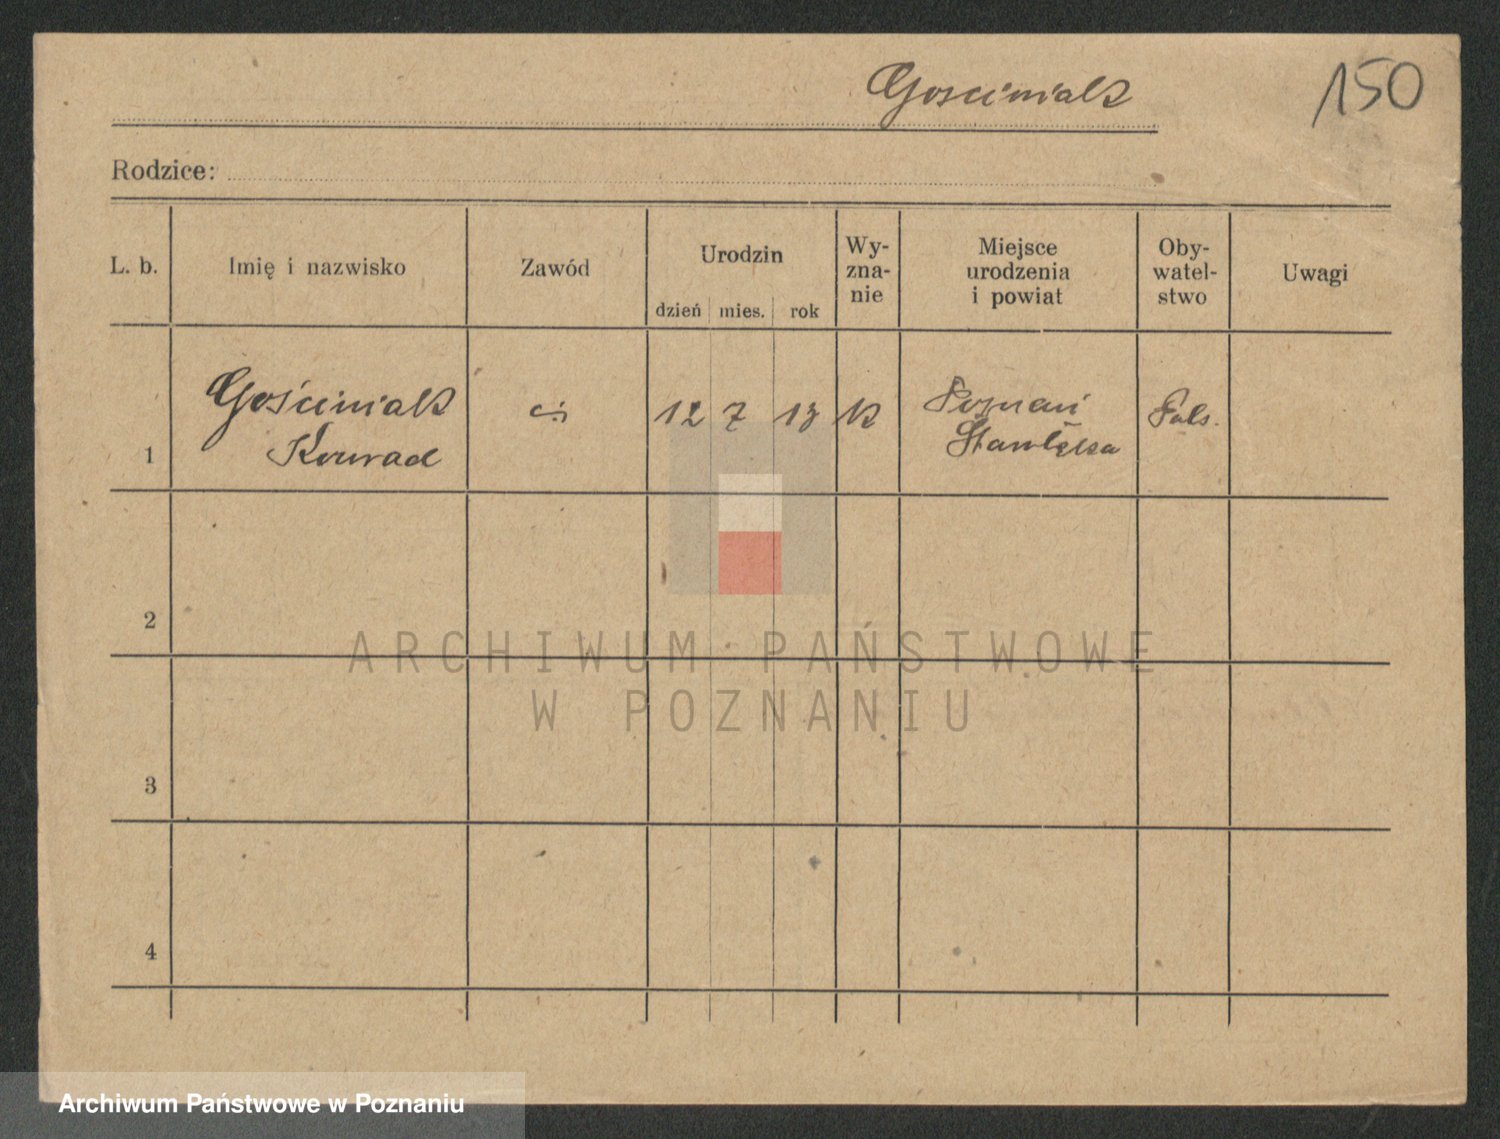 Gościniak
150
Rodzice:
L. b. Imię i nazwisko Zawód Urodzin Wy-zna-nie Miejsce urodzenia i powiat Oby-watel-stwo Uwagi
dzień mies. rok
1 Gościniak Konrad 12 7 13 k Poznań Pols.
2
3
4
ARCHIWUM PAŃSTWOWE
W POZNANIU
Archiwum Państwowe w Poznaniu